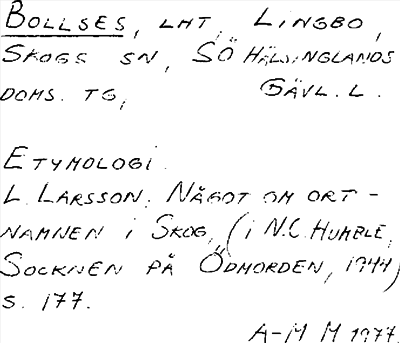 BOLLSES, LHT, LINGBO,
SKOGS SN, SÖ HÄLSINGLANDS
DOMS. TG, GÄVL. L.
ETYMOLOGI.
L. LARSSON. NÅGOT OM ORT-
NAMNEN I SKOG, (I N.C. HUMBLE,
SOCKNEN PÅ ÖDMORDEN, 1944)
S. 177.
A-M M 1977.